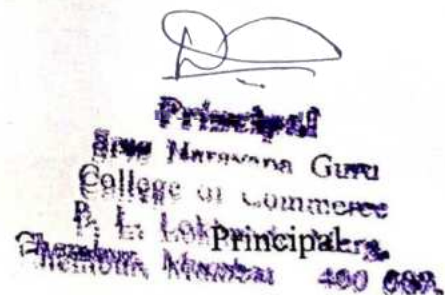 Principal
Sree Narayana Guru
College of Commerce
P. L. Principal
Chembur, Mumbai 400 089.